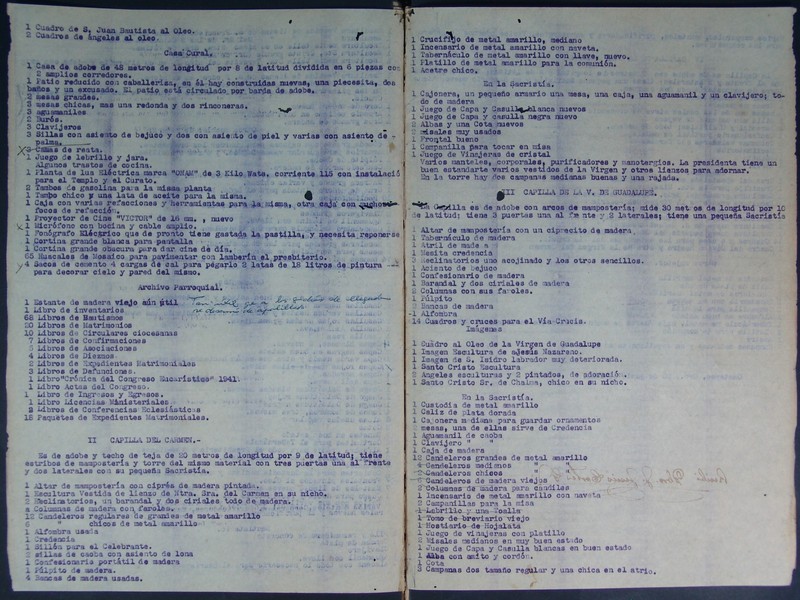 1 Cuadro de S. Juan Bautista al Oleo.
2 Cuadros de ángeles al óleo.
Casa Cural.
1 Casa de adobe de 48 metros de longitud por 8 de latitud dividida en 6 piezas con
2 amplios corredores.
1 Patio reducido con caballeriza, en él hay construidas nuevas, una piecesita, dos
baños y un excusado. El patio está circulado por barda de adobe.
2 mesas grandes.
3 mesas chicas, mas una redonda y dos rinconeras.
3 aguamaniles
2 Burós.
3 Clavijeros
3 Sillas con asiento de bejuco y dos con asiento de piel y varias con asiento de -
palma.
3 Camas de reata.
1 Juego de lebrillo y jara.
Algunos trastos de cocina.
1 Planta de luz Eléctrica marca "ONAN" de 3 Kilo Wats, corriente 115 con instalació
para el Templo y el Curato.
2 Tambos de gasolina para la misma planta
1 Tambo chico y una lata de aceite para la misma.
1 Caja con varias refacciones y herramientas para la misma, otra caja con
focos de refacción.
1 Proyector de Cine "VICTOR" de 16 mm. , nuevo
1 Micrófono con bocina y cable amplio.
1 Fonógrafo Eléctrico que de pronto tiene gastada la pastilla, y necesita reponerse
1 Cortina grande blanca para pantalla
1 Cortina grande obscura para dar cine de día.
65 Huacales de Mosaico para pavimentar con lambrín el presbiterio.
4 Sacos de cemento 4 cargas de cal para pegarlo 2 latas de 18 litros de pintura
para decorar cielo y pared del mismo.
Archivo Parroquial.
1 Estante de madera viejo aún útil
1 Libro de inventarios
68 Libros de Bautismos
20 Libros de Matrimonios
10 Libros de Circulares diocesanas
7 Libros de Confirmaciones
5 Libros de Asociaciones
4 Libros de Diezmos
2 Libros de Expedientes Matrimoniales
3 Libros de Defunciones.
1 Libro"Crónica del Congreso Eucarístico" 1941.
1 Libro Actas del Congreso.
1 Libro de Ingresos y Egresos.
1 Libro Licencias Ministeriales
9 Libros de Conferencias Eclesiásticas
18 Paquetes de Expedientes Matrimoniales.
II CAPILLA DEL CARMEN.-
Es de adobe y techo de teja de 20 metros de longitud por 9 de latitud; tiene
estribos de mampostería y torre del mismo material con tres puertas una al frente
y dos laterales con su pequeña Sacristía.
1 Altar de mampostería con ciprés de madera pintada.
1 Escultura Vestida de lienzo de Ntra. Sra. del Carmen en su nicho.
2 Reclinatorios, un barandal y dos ciriales todo de madera.
Columnas de madera con farolas.
12 Candeleros regulares de grandes de metal amarillo
6 " chicos de metal amarillo
1 Alfombra usada
1 Credencia
1 Sillón para el Celebrante.
2 sillas de caoba con asiento de lona
1 Confesionario portátil de madera
1 Púlpito de madera.
4 Bancas de madera usadas.
1 Crucifijo de metal amarillo, mediano
1 Incensario de metal amarillo con naveta.
1 Tabernáculo de metal amarillo con llave, nuevo.
1 Platillo de metal amarillo para la comunión.
1 Acetre chico.
En la Sacristía.
1 Cajonera, un pequeño armario una mesa, una caja, una aguamanil y un clavijero; to-
do de madera
1 Juego de Capa y Casulla blanca nuevos
1 Juego de Capa y casulla negra nuevo
2 Albas y una Cota nuevos
2 misales muy usados
1 Frontal bueno
1 Campanilla para tocar en misa
1 Juego de Vinajeras de cristal
Varios manteles, corporales, purificadores y manotergios. La presidenta tiene un
buen estandarte varios vestidos de la Virgen y otros lienzos para adornar.
En la torre hay dos campanas medianas buenas y una rajada.
III CAPILLA DE LA V. DE GUADALUPE.
La Capilla es de adobe con arcos de mampostería; mide 30 metros de longitud por 10
de latitud; tiene 3 puertas una al frente y 2 laterales; tiene una pequeña Sacristía
1 Altar de mampostería con un ciprecito de madera
1 Tabernáculo de madera
1 Atril de madera
1 Mesita credencia
3 Reclinatorios uno acojinado y los otros sencillos.
1 Asiento de bejuco
1 Confesionario de madera
1 Barandal y dos ciriales de madera
2 Columnas con sus faroles.
1 Púlpito
2 Bancas de madera
1 Alfombra
14 Cuadros y cruces para el Vía-Crucis.
Imágenes
1 Cuadro al Oleo de la Virgen de Guadalupe
1 Imagen Escultura de Jesús Nazareno.
1 Imagen de S. Isidro labrador muy deteriorada.
1 Santo Cristo Escultura
2 Angeles esculturas y 2 pintados, de adoración.
1 Santo Cristo Sr. de Chalma, chico en su nicho.
En la Sacristía.
1 Custodia de metal amarillo
1 Caliz de plata dorada
1 Cajonera mediana para guardar ornamentos
mesas, una de ellas sirve de Credencia
1 Aguamanil de caoba
1 Clavijero " "
1 Caja de madera
12 Candeleros grandes de metal amarillo
4 Candeleros medianos " "
2 Candeleros chicos " "
6 Candeleros de madera viejos
2 Columnas de madera para candiles
1 Incensario de metal amarillo con naveta
2 Campanillas para la misa
1 Lebrillo y una Toalla
1 Tomo de breviario viejo
1 Hostiario de Hojalata
1 Juego de vinajeras con platillo
2 Misales medianos en muy buen estado
1 Juego de Capa y Casulla blancas en buen estado
1 Alba con amito y cordón.
1 Cota
3 Campanas dos tamaño regular y una chica en el atrio.